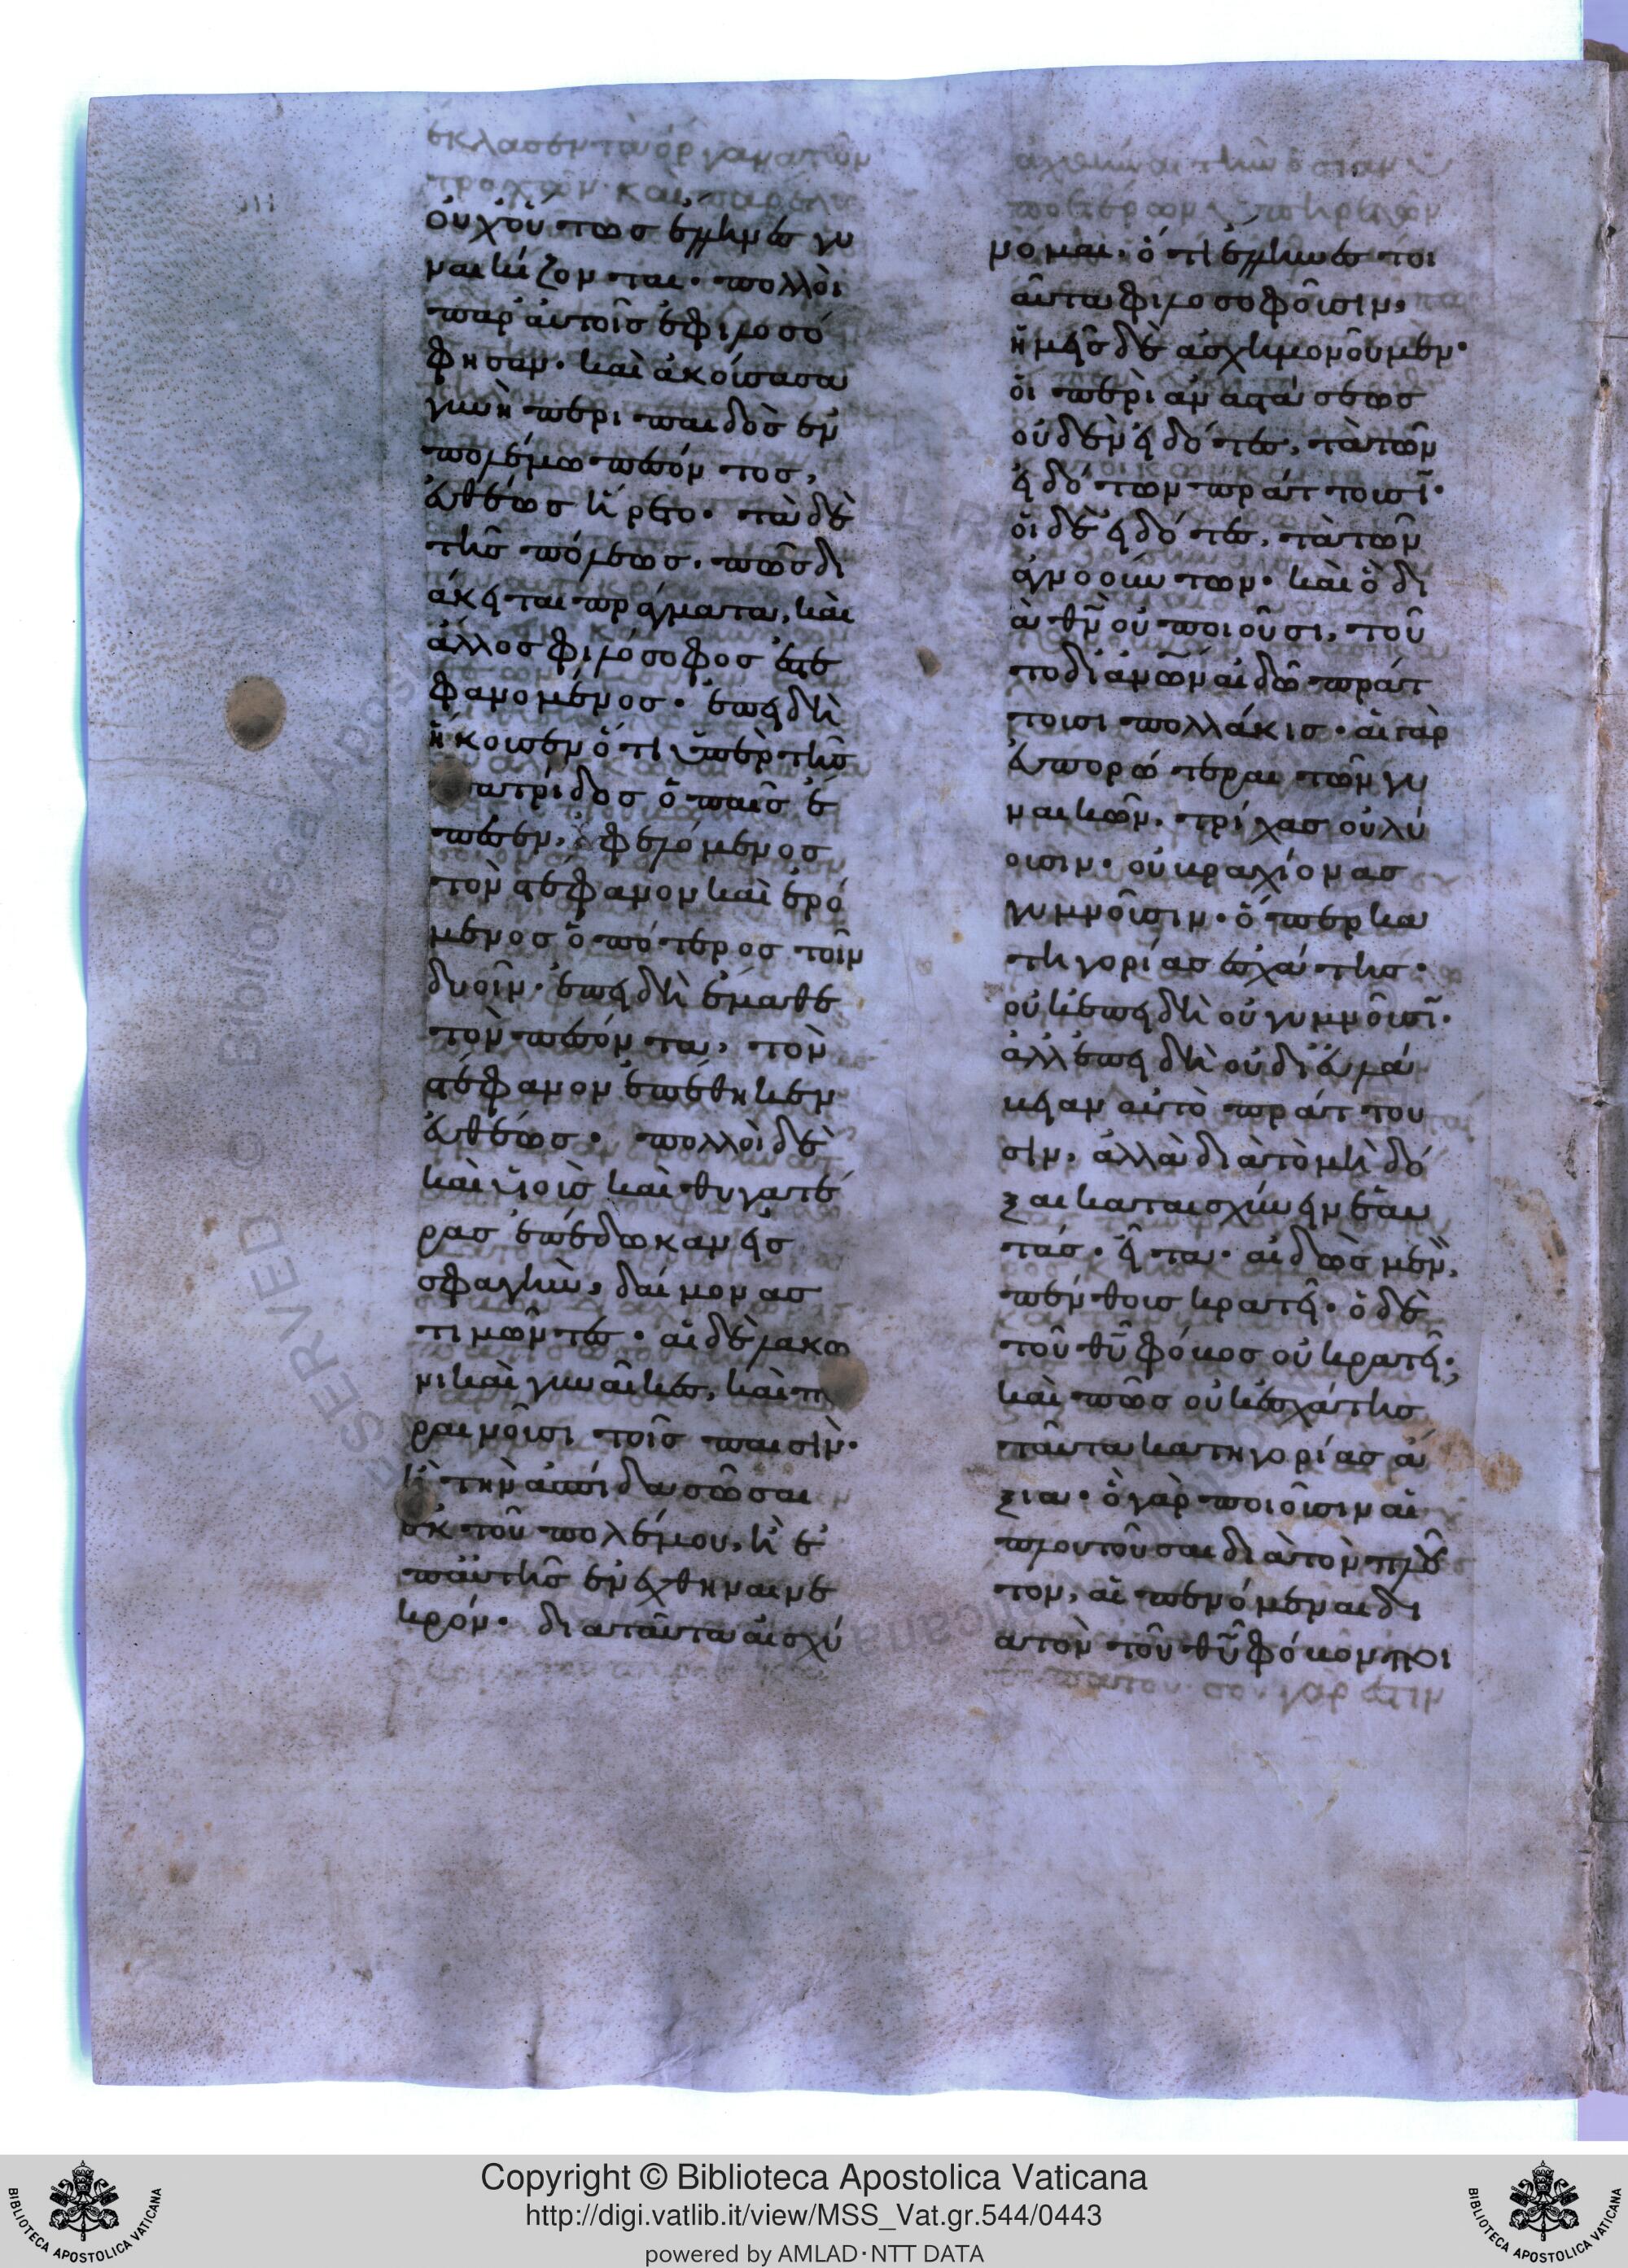 οὐχ οὕτως ἕλληνες γυ
ναικίζονται· πολλοὶ
παρ' αὐτοῖς ἐφιλοσό
φησαν· καὶ ἀκούσασα
γυνὴ περι παιδὸς ἐν
πολέμω πεσόντος,
εὐθέως ἤρετο· τὰ δὲ
τῆς πόλεως, πῶς δι
άκειται πράγματα, καὶ
ἄλλος φιλόσοφος ἐστε
φανομένος· ἐπειδὴ
ἤκουσεν ὅτι ὑπὲρ τῆς
πατρίδος ὁ παῖς ἔ
πεσεν, ἀφελόμενος
τὸν στέφανον καὶ ἐρό
μενος ὁπότερος τοῖν
δυοῖν· ἐπειδὴ ἔμαθε
τὸν πεσόντα, τὸν
στέφανον ἐπέθηκεν
εὐθέως· πολλοὶ δὲ
καὶ υἱοὺς καὶ θυγατέ
ρας ἐπέδωκαν εἰς
σφαγὴν, δαίμονας
τιμῶντες· αἱ δὲ λακω
νικαὶ γυναῖκες, καὶ π
ραινοῦσι τοῖς παισὶν·
ἢ τὴν ἀσπίδα σῶσαι
ἐκ τοῦ πολέμου, ἢ ἐ
π' αὐτῆς ἐνεχθῆναι νε
κρόν· διὰ ταῦτα αἰσχύ
νομαι, ὅτι ἕλληνες τοι
αῦτα φιλοσοφοῦσιν,
ἡμεῖς δὲ ἀσχημονοῦμεν·
οἱ περὶ ἀναστάσεως
οὐδὲν εἰδότες, τὰ τῶν
εἰδότων πράττουσῖ·
οἱ δὲ εἰδότες, τὰ τῶν
ἀγνοούντων· καὶ ὃ δι
ὰ θν̅ οὐ ποιοῦσι, τοῦ
το δι' ἀνων αἰδῶ πράτ
τουσι πολλάκις· αἱ γὰρ
εὐπορώτεραι τῶν γυ
ναικῶν, τρίχας οὐ λύ
ουσιν· οὐ βραχίονας
γυμνοῦσιν· ὅπερ κα
τηγορίας ἐσχάτης·
οὐκ ἐπειδὴ οὐ γυμνοῦσῖ·
ἀλλ' ἐπειδὴ οὐ δι' εὐλά
βειαν αὐτὸ πράττου
σιν, ἀλλὰ διὰ τὸ μὴ δό
ξαι καταισχύνειν ἑαυ
τάς· εἶτα· αἰδὼς μὲν,
πένθους κρατεῖ· ὁ δὲ
τοῦ θυ̅ φόβος οὐ κρατεῖ;
καὶ πῶς οὐκ ἐσχάτης
ταῦτα κατηγορίας ἄ
ξια· ὃ γὰρ ποιοῦσιν αἱ
πλουτοῦσαι διὰ τὸν πλοῦ
τον, αἱ πενόμεναι δι
ὰ τὸν τοῦ θυ̅ φόβον ποι
Copyright © Biblioteca Apostolica Vaticana
http://digi.vatlib.it/view/MSS_Vat.gr.544/0443
powered by AMLAD·NTT DATA
BIBLIOTECA APOSTOLICA VATICANA
BIBLIOTECA APOSTOLICA VATICANA